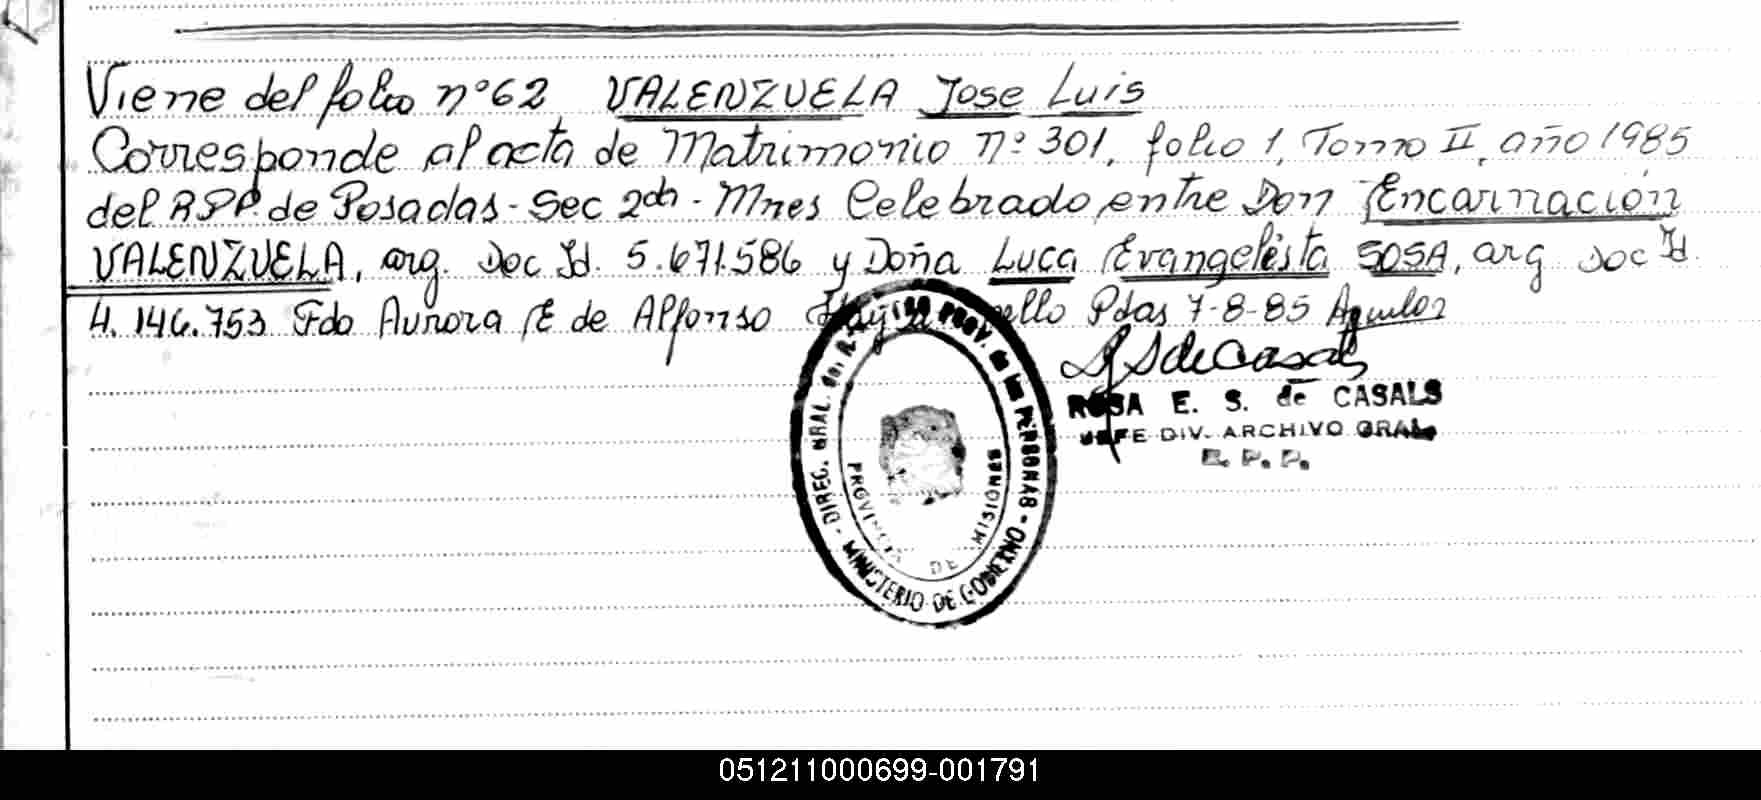 Viene del folio nº 62 VALENZUELA Jose Luis
Corresponde al acta de Matrimonio nº 301, folio 1, Tomo II, año 1985
del RPP. de Posadas - Sec 2da - Mnes Celebrado entre Don Encarnación
VALENZUELA, arg. Doc Id. 5.671.586 y Doña Luca Evangelista SOSA, arg Doc Id.
4.146.753 Fdo Aurora E de Alfonso Hay sello Pdas 7-8-85 Aguilar
RSdeCasals
ROSA E. S. de CASALS
JEFE DIV. ARCHIVO GRAL.
R. P. P.
DIREC. GRAL. del PROV. de las PERSONAS - MINISTERIO DE GOBIERNO -
PROVINCIA DE MISIONES
051211000699-001791